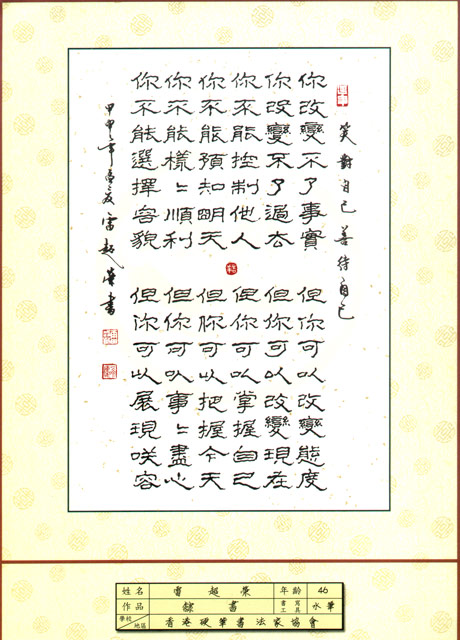 笑對自己 善待自己
你改變不了事實 但你可以改變態度
你改變不了過去 但你可以改變現在
你不能控制他人 但你可以掌握自己
你不能預知明天 但你可以把握今天
你不能樣々順利 但你可以事々盡心
你不能選擇容貌 但你可以展現咲容
甲申年孟夏雷超榮書
姓名 雷超榮 年齡 46
作品 隸書 書寫工具 水筆
學校 地區 香港硬筆書法家協會